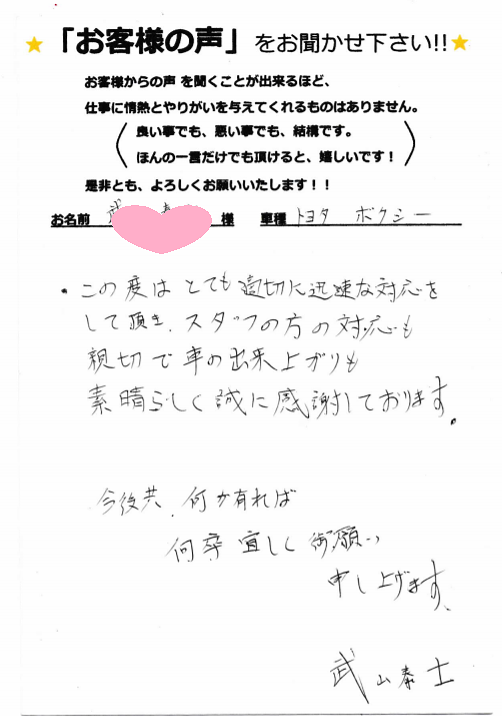 ★「お客様の声」をお聞かせ下さい!!★
お客様からの声 を聞くことが出来るほど、
仕事に情熱とやりがいを与えてくれるものはありません。
良い事でも、悪い事でも、結構です。
ほんの一言だけでも頂けると、嬉しいです！
是非とも、よろしくお願いいたします！！
お名前 武 様 車種 トヨタ ボクシー
・この度は とても適切に迅速な対応を
して頂き、スタッフの方の対応も
親切で車の出来上がりも
素晴らしく誠に感謝しております。
今後共、何か有れば
何卒宜しく御願い
申し上げます、
武山泰士